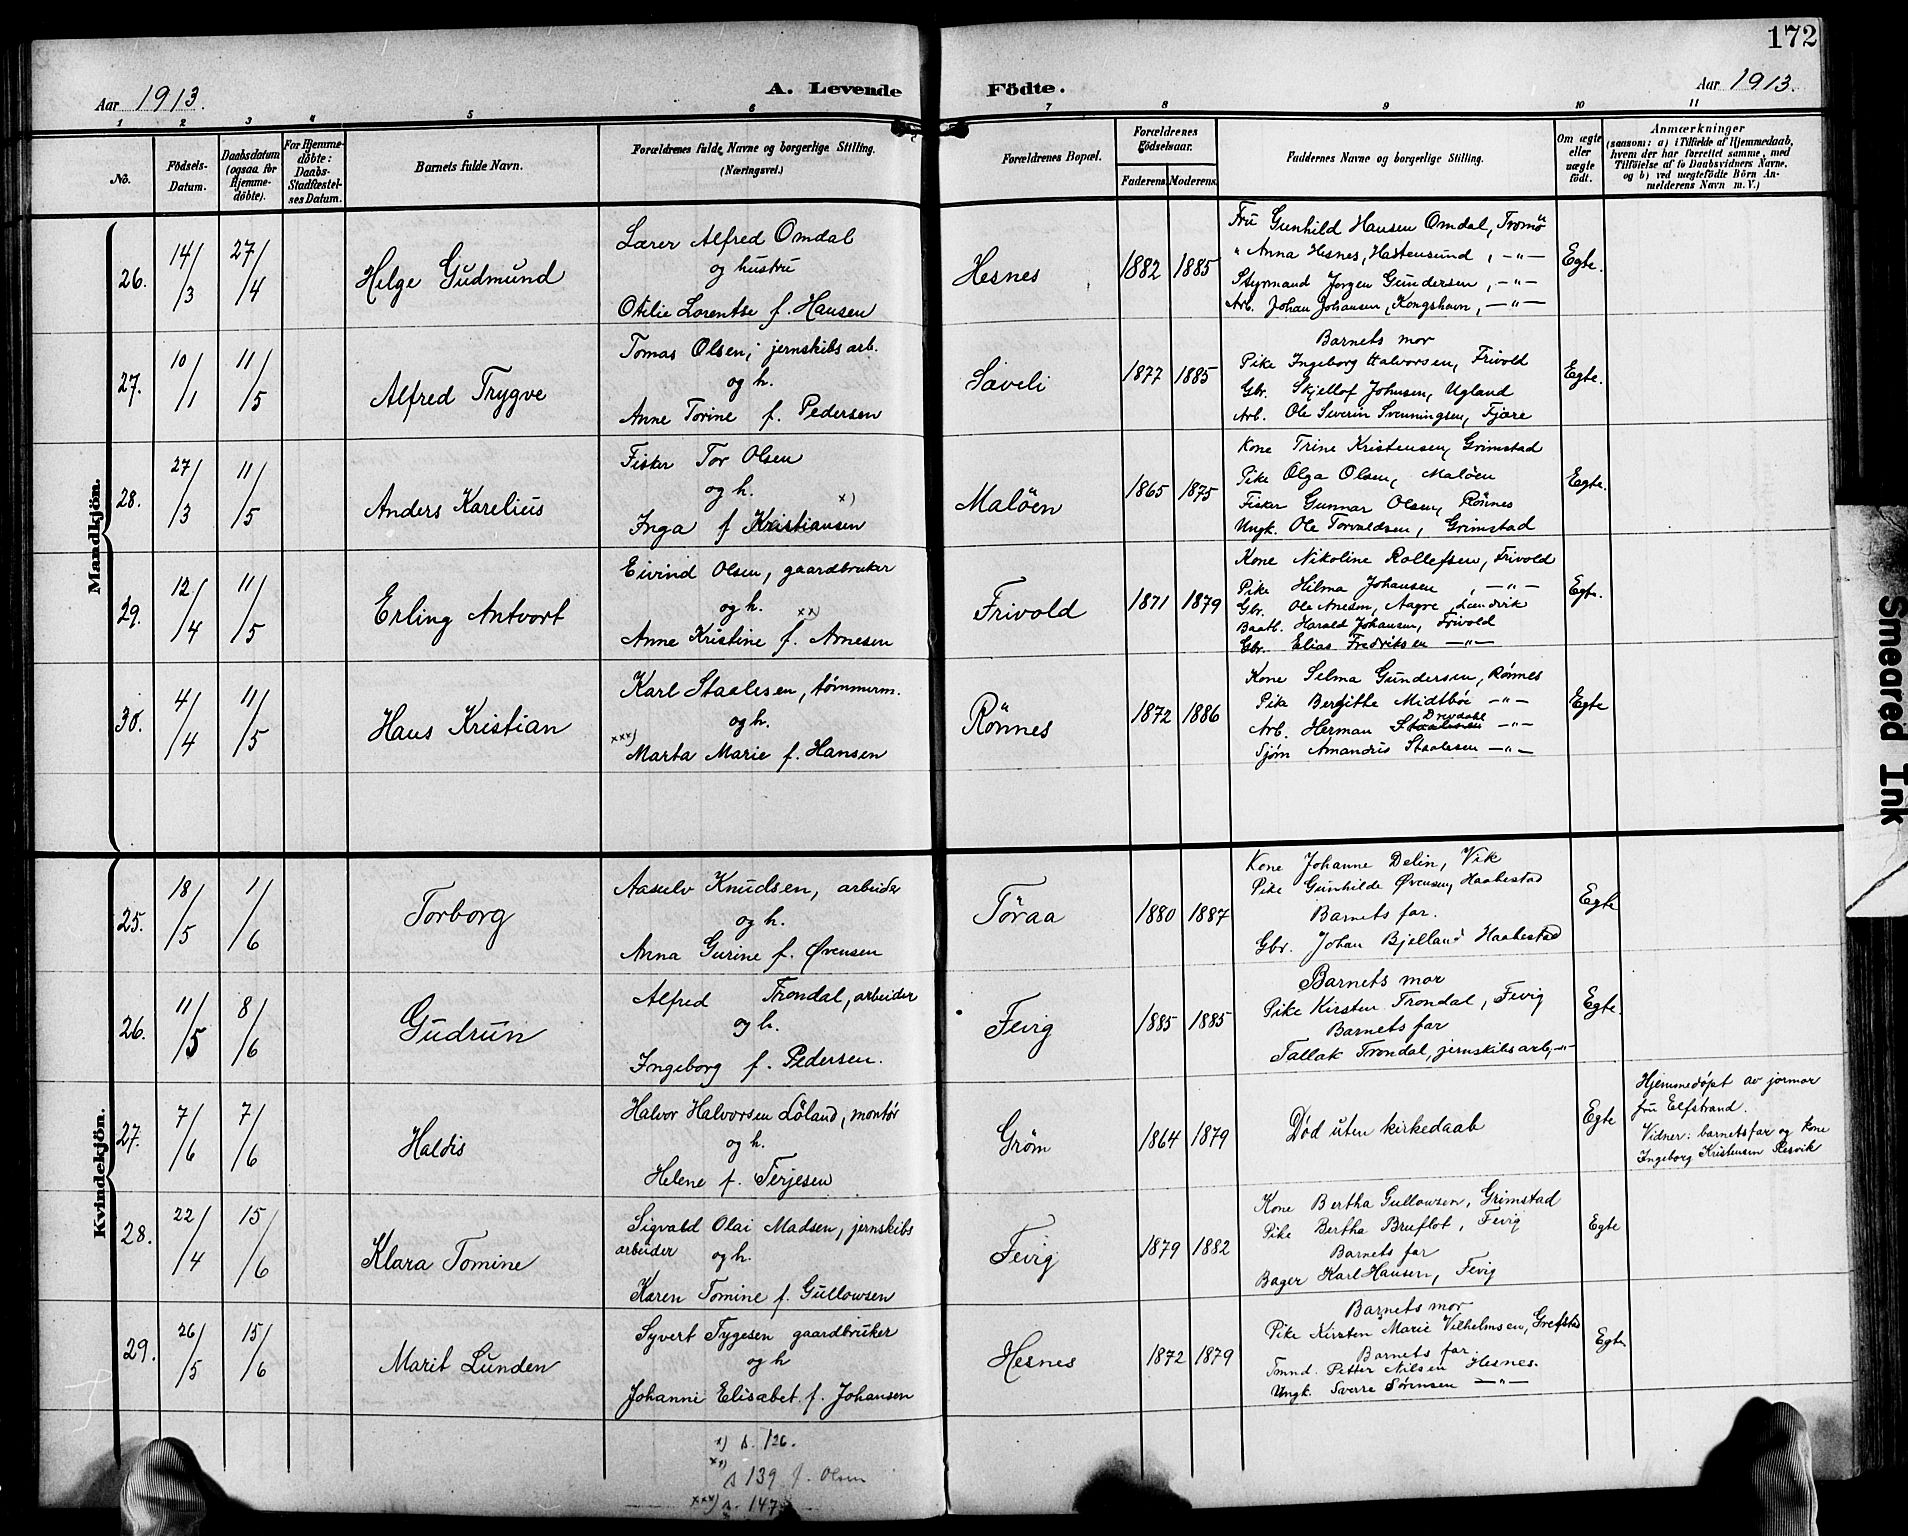 172
Aar 1913.
A. Levende Födte.
Aar 1913.
1 2 3 4 5 6 7 8 9 10 11
No.
Fødsels-Datum.
Daabsdatum (ogsaa for Hjemme-døbte).
For Hjemme-døbte: Daabs-Stadfæstel-ses Datum.
Barnets fulde Navn.
Forældrenes fulde Navne og borgerlige Stilling. (Næringsvei.)
Forældrenes Bopæl.
Forældrenes Fødselsaar.
Faderens. Moderens.
Faddernes Navne og borgerlige Stilling.
Om ægte eller uægte født.
Anmærkninger
(saasom: a) i Tilfælde af Hjemmedaab, hvem der har forrettet samme, med Tilföielse af to Daabsvidners Navne, og b) ved uægtefödte Börn An-melderens Navn m. V.)
Mandkjön.
26. 14/3 27/4 Helge Gudmund
Lærer Alfred Omdal
og hustru
Otilie Lorentse f. Hansen
Hesnes 1882 1885
Fru Gunhild Hansen Omdal, Tromö
" Anna Hesnes, Hastensund, -"-
Styrmand Jørgen Gundersen, -"-
Arb. Johan Johansen, Kongshavn, -"-
Egte.
27. 10/1 11/5 Alfred Trygve
Tomas Olsen, jernskibsarb.
og h.
Anne Torine f. Pedersen
Saveli 1877 1885
Barnets mor
Pike Ingeborg Halvorsen, Frivold
Gbr. Skjellof Johnsen, Ugland
Arb. Ole Severin Svenningsen, Fjære
Egte.
28. 27/3 11/5 Anders Karelius
Fisker Tor Olsen
og h. x)
Inga f Kristiansen
Malöen 1865 1875
Kone Trine Kristensen, Grimstad
Pike Olga Olsen, Malöen
Fisker Gunnar Olsen, Rönnes
Ungk. Ole Torvaldsen, Grimstad
Egte.
29. 12/4 11/5 Erling Antvort
Eivind Olsen, gaardbruker
og h. xx)
Anne Kristine f. Arnesen
Frivold 1871 1879
Kone Nikoline Rollefsen, Frivold
Pike Hilma Johansen, -"-
Gbr. Ole Arnesen, Aagre, Landvik
Baatb. Harald Johansen, Frivold
Gbr. Elias Fredriksen -"-
Egte.
30. 4/4 11/5 Hans Kristian
Karl Staalesen, tømmerm.
og h.
xxx) Marta Marie f. Hansen
Rönnes 1872 1886
Kone Selma Gundersen, Rønnes
Pike Bergitte Midtbøe -"-
Arb. Herman Staalesen Drevdahl -"-
Sjøm Amandus Staalesen -"-
Egte
Kvindekjön.
25. 18/5 1/6 Torborg
Aasulv Knudsen, arbeider
og h.
Anna Gurine f. Øvensen
Töraa 1880 1887
Kone Johanne Delin, Vik
Pike Gunhilde Øvensen, Haabestad
Barnets far.
Gbr. Johan Bjelland Haabestad
Egte
26. 11/5 8/6 Gudrun
Alfred Trondal, arbeider
og h.
Ingeborg f. Pedersen.
Fevig 1885 1885
Barnets mor
Pike Kirsten Trondal, Fevig
Barnets far
Tallak Trondal, jernskibsarb, -"-
Egte.
27. 7/6 7/6 Haldis
Halvor Halvorsen Löland, montør
og h.
Helene f. Terjesen
Grøm 1864 1879
Død uten kirkedaab
Egte
Hjemmedøpt av jormor
fru Elfstrand.
Vidner: barnets far og kone
Ingeborg Kristensen Resvik
28. 22/4 15/6 Klara Tomine
Sigvald Olai Madsen, jernskibs
arbeider og h.
Karen Tomine f. Gullowsen
Fevig 1879 1882
Kone Bertha Gullowsen, Grimstad
Pike Bertha Bruflot, Fevig
Barnets far
Bager Karl Hansen, Fevig
Egte
29. 26/5 15/6 Marit Lunden
Syvert Tygesen gaardbruker
og h
Johanne Elisabet f. Johansen
Hesnes 1872 1879
Barnets mor
Pike Kirsten Marie Vilhelmsen, Grefstad
Barnets far.
Tmnd. Petter Nilsen Hesnes.
Ungk. Sverre Sörensen -"-
Egte
x) s. 126.
xx) s 139 f. Olsen
xxx) s. 147
Smeared Ink